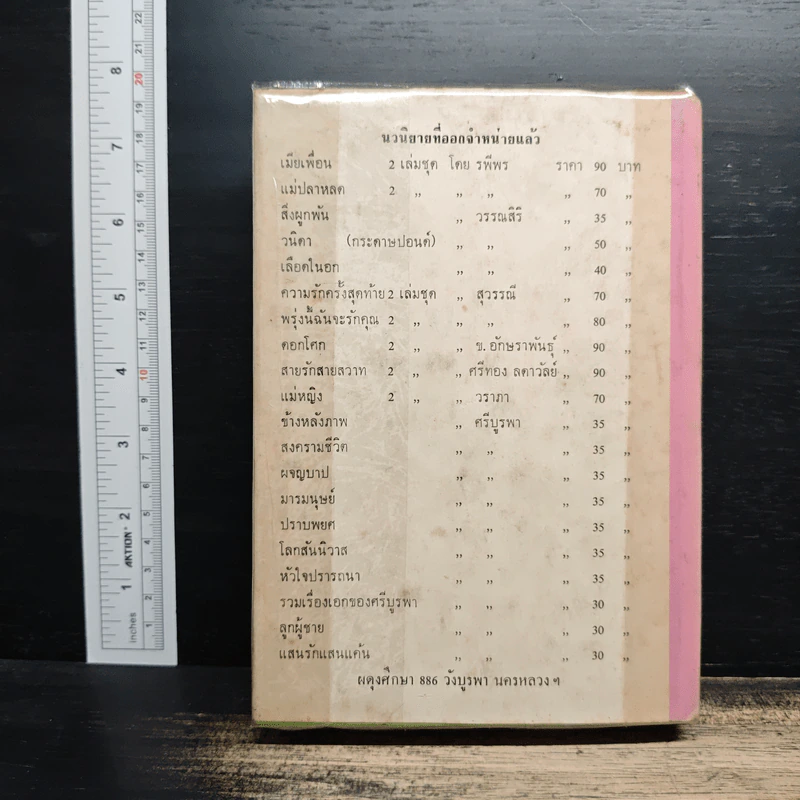 นวนิยายที่ออกจำหน่ายแล้ว
เมียเพื่อน 2 เล่มชุด โดย รพีพร ราคา 90 บาท
แม่ปลาหลด 2 ,, ,, ,, ,, 70 ,,
สิ่งผูกพัน ,, วรรณสิริ ,, 35 ,,
วนิดา (กระดาษปอนด์) ,, ,, ,, 50 ,,
เลือดในอก ,, ,, ,, 40 ,,
ความรักครั้งสุดท้าย 2 เล่มชุด ,, สุวรรณี ,, 70 ,,
พรุ่งนี้ฉันจะรักคุณ 2 ,, ,, ,, ,, 80 ,,
ดอกโศก 2 ,, ,, ข. อักษราพันธุ์ ,, 90 ,,
สายรักสายสวาท 2 ,, ,, ศรีทอง ลดาวัลย์ ,, 90 ,,
แม่หญิง 2 ,, ,, วราภา ,, 70 ,,
ข้างหลังภาพ ,, ศรีบูรพา ,, 35 ,,
สงครามชีวิต ,, ,, ,, 35 ,,
ผจญบาป ,, ,, ,, 35 ,,
มารมนุษย์ ,, ,, ,, 35 ,,
ปราบพยศ ,, ,, ,, 35 ,,
โลกสันนิวาส ,, ,, ,, 35 ,,
หัวใจปรารถนา ,, ,, ,, 35 ,,
รวมเรื่องเอกของศรีบูรพา ,, ,, ,, 30 ,,
ลูกผู้ชาย ,, ,, ,, 30 ,,
แสนรักแสนแค้น ,, ,, ,, 30 ,,
ผดุงศึกษา 886 วังบูรพา นครหลวง ฯ
22
21
20
19
18
17
16
15
14
13
12
11
10
9
8
7
6
5
4
3
2
1
8
7
6
5
4
3
2
1
AKTION
inches